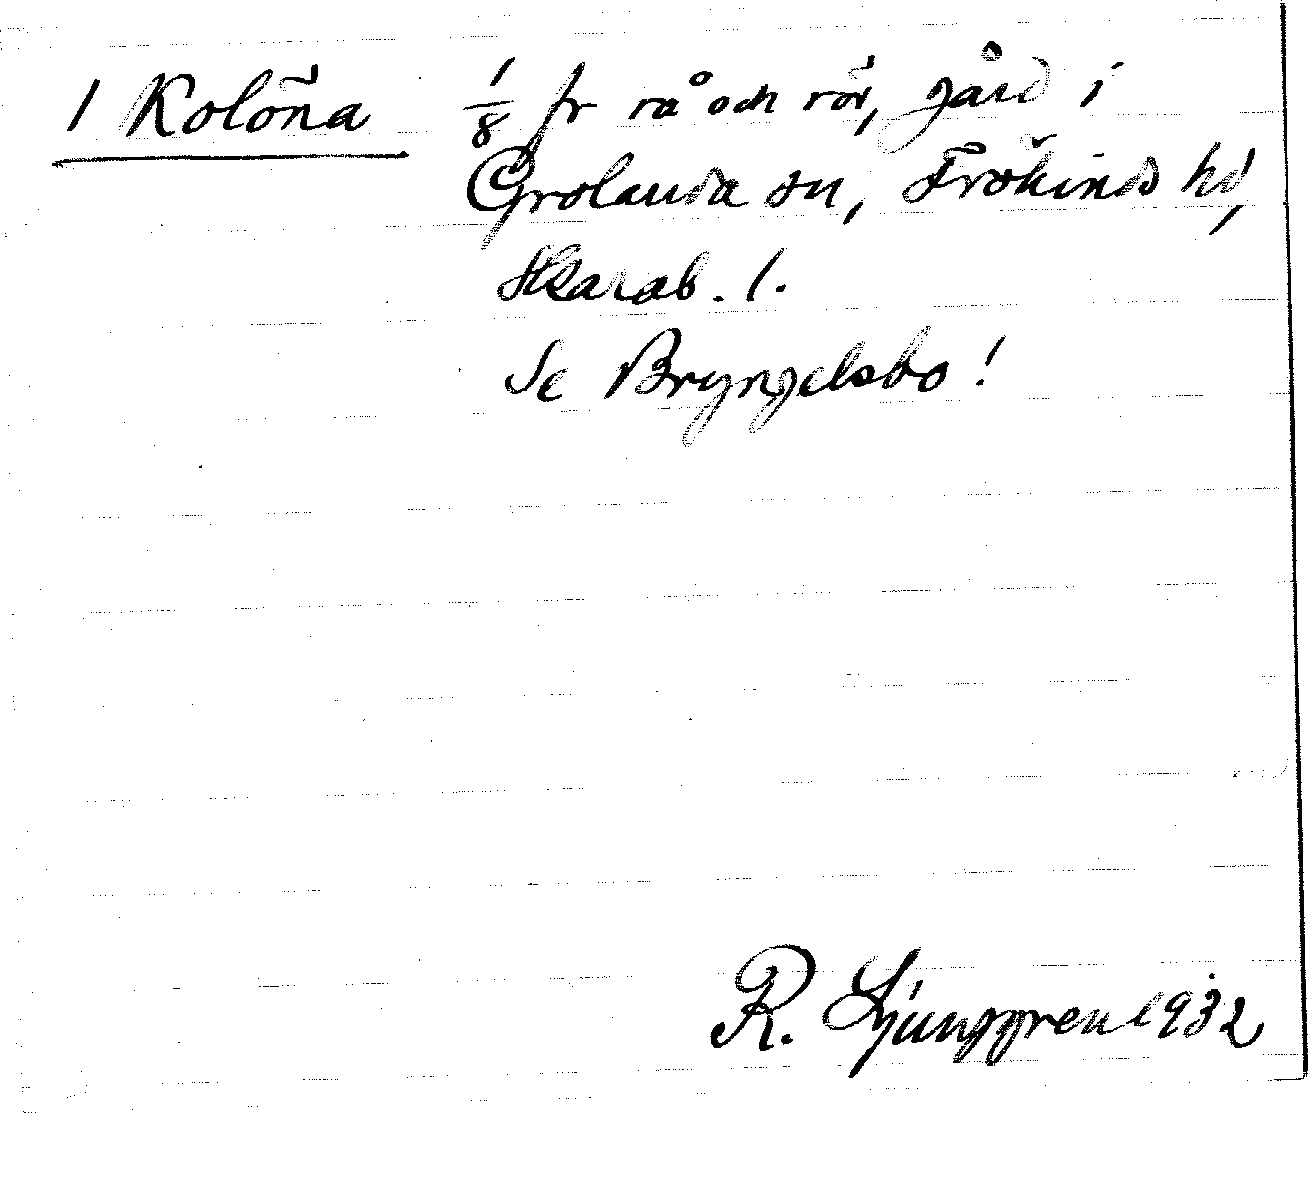 1 Kolöna 1/8 fr rå och rör, gård i
Grolanda sn, Frökinds hd,
Skarab. l.
Se Bryngelsbo!
R. Ljunggren 1932